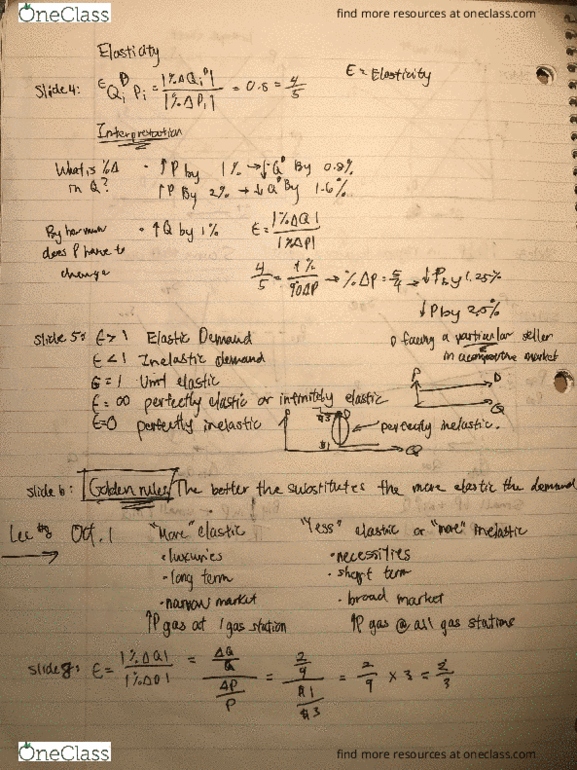 OneClass
find more resources at oneclass.com
Elasticity
Slide 4: ε Q_i^D P_i = |%ΔQ_i^D| / |%ΔP_i| = 0.8 = 4/5
E = Elasticity
Interpretation
What is %Δ in Q?
• ↑P by 1% → ↓Q^D By 0.8%
↑P By 2% → ↓Q^D By 1.6%
By how much does P have to change
• ↑Q by 1%
ε = |%ΔQ| / |%ΔP|
4/5 = 1% / %ΔP → %ΔP = 5/4 → ↓P by 1.25%
↓P by 2.5%
Slide 5: ε > 1 Elastic Demand
ε < 1 Inelastic demand
ε = 1 Unit elastic
ε = ∞ perfectly elastic or infinitely elastic
ε=0 perfectly inelastic
D facing a particular seller
in a competitive market
P
D
Q
P
$3
D
$1
Q
perfectly inelastic.
Slide 6: Golden rules/ The better the substitutes the more elastic the demand
Lec Oct. 1
"More" elastic
• luxuries
• long term
• narrow market
↑P gas at 1 gas station
"less" elastic or "more" inelastic
• necessities
• short term
• broad market
↑P gas @ all gas stations
ε = |%ΔQ| / |%ΔP| = (ΔQ/Q) / (ΔP/P) = (2/9) / ($1/$3) = 2/9 x 3 = 2/3
OneClass
find more resources at oneclass.com